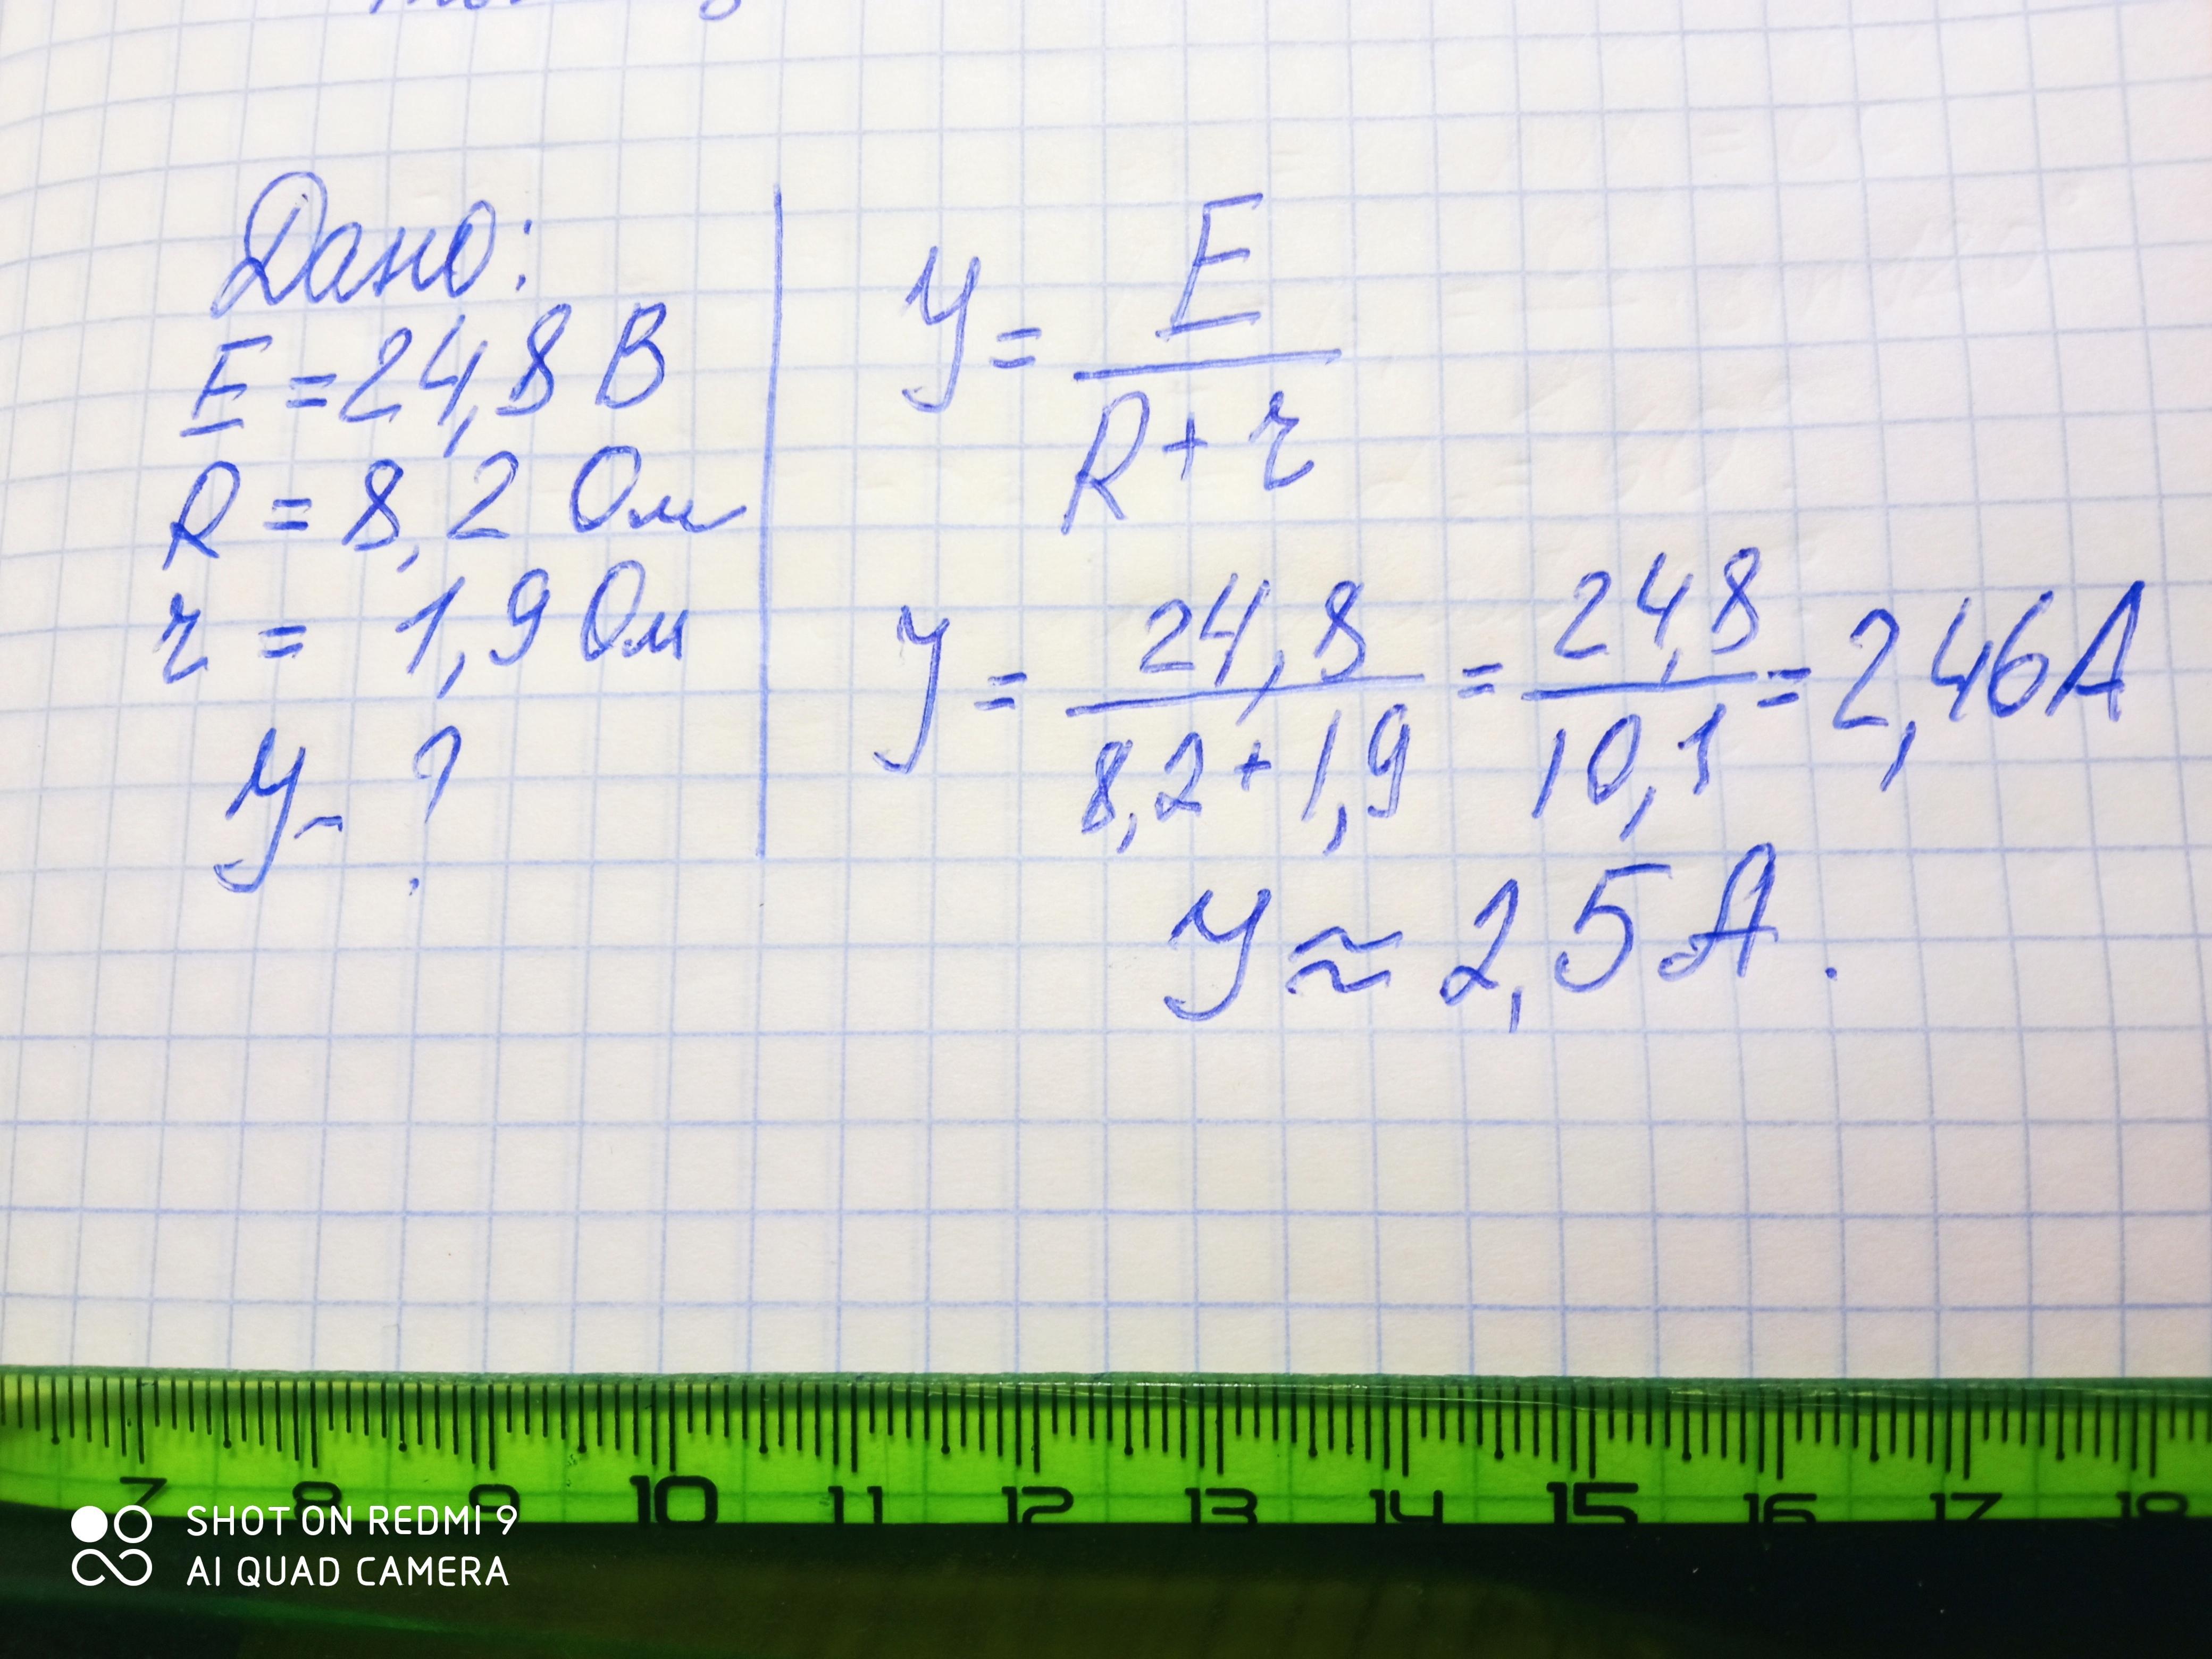 Дано:
E = 24,8 В
R = 8,2 Ом
r = 1,9 Ом
У - ?
У = E / R + r
У = 24,8 / 8,2 + 1,9 = 24,8 / 10,1 = 2,46 А
У ≈ 2,5 А.
7 8 9 10 11 12 13 14 15 16 17 18
SHOT ON REDMI 9
AI QUAD CAMERA